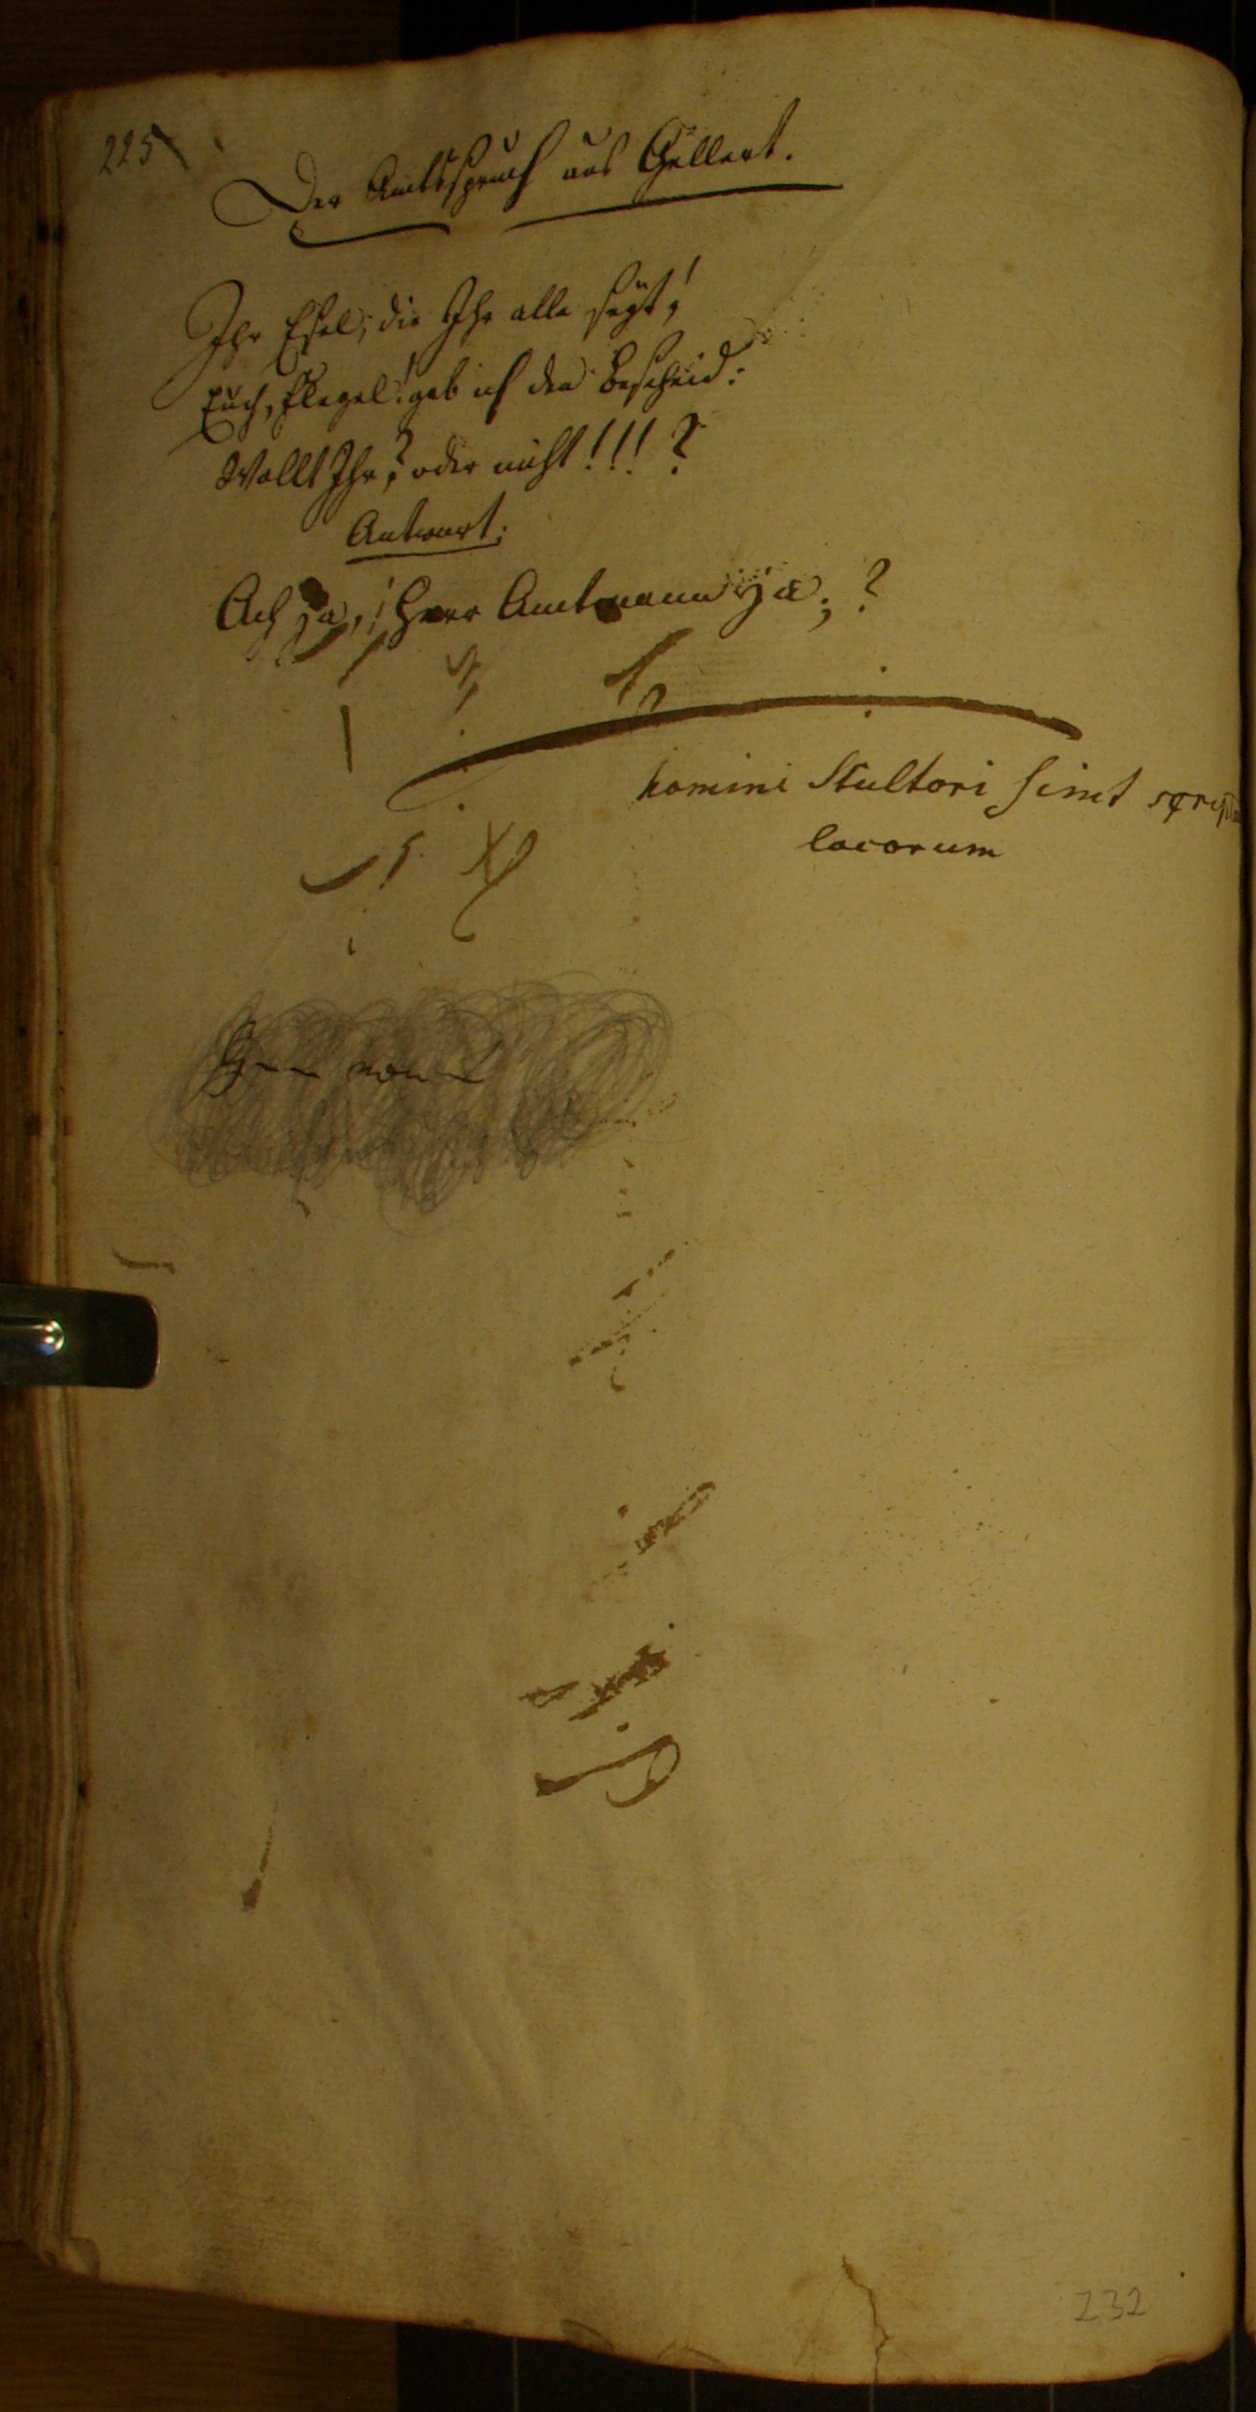 225
Der Amtsspruch aus Gellert.
Ihr Esel, die Ihr alle seyt!
Euch, Flegel! geb ich den Bescheid:
Wollt Ihr? oder nicht!!!?
Antwort:
Ach ja, ! Herr Amtmann ja; ?
homini Stultori sint
locorum
232